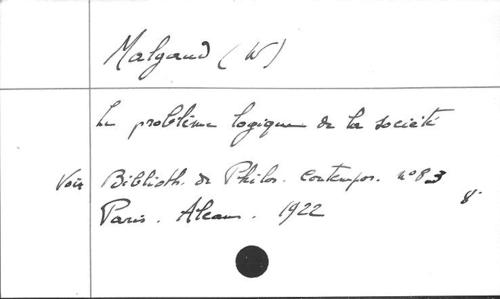 Malgaud (W)
Le problème logique de la société
Voir Biblioth. de Philos. contempor. n° 83
Paris. Alcan. 1922 8°